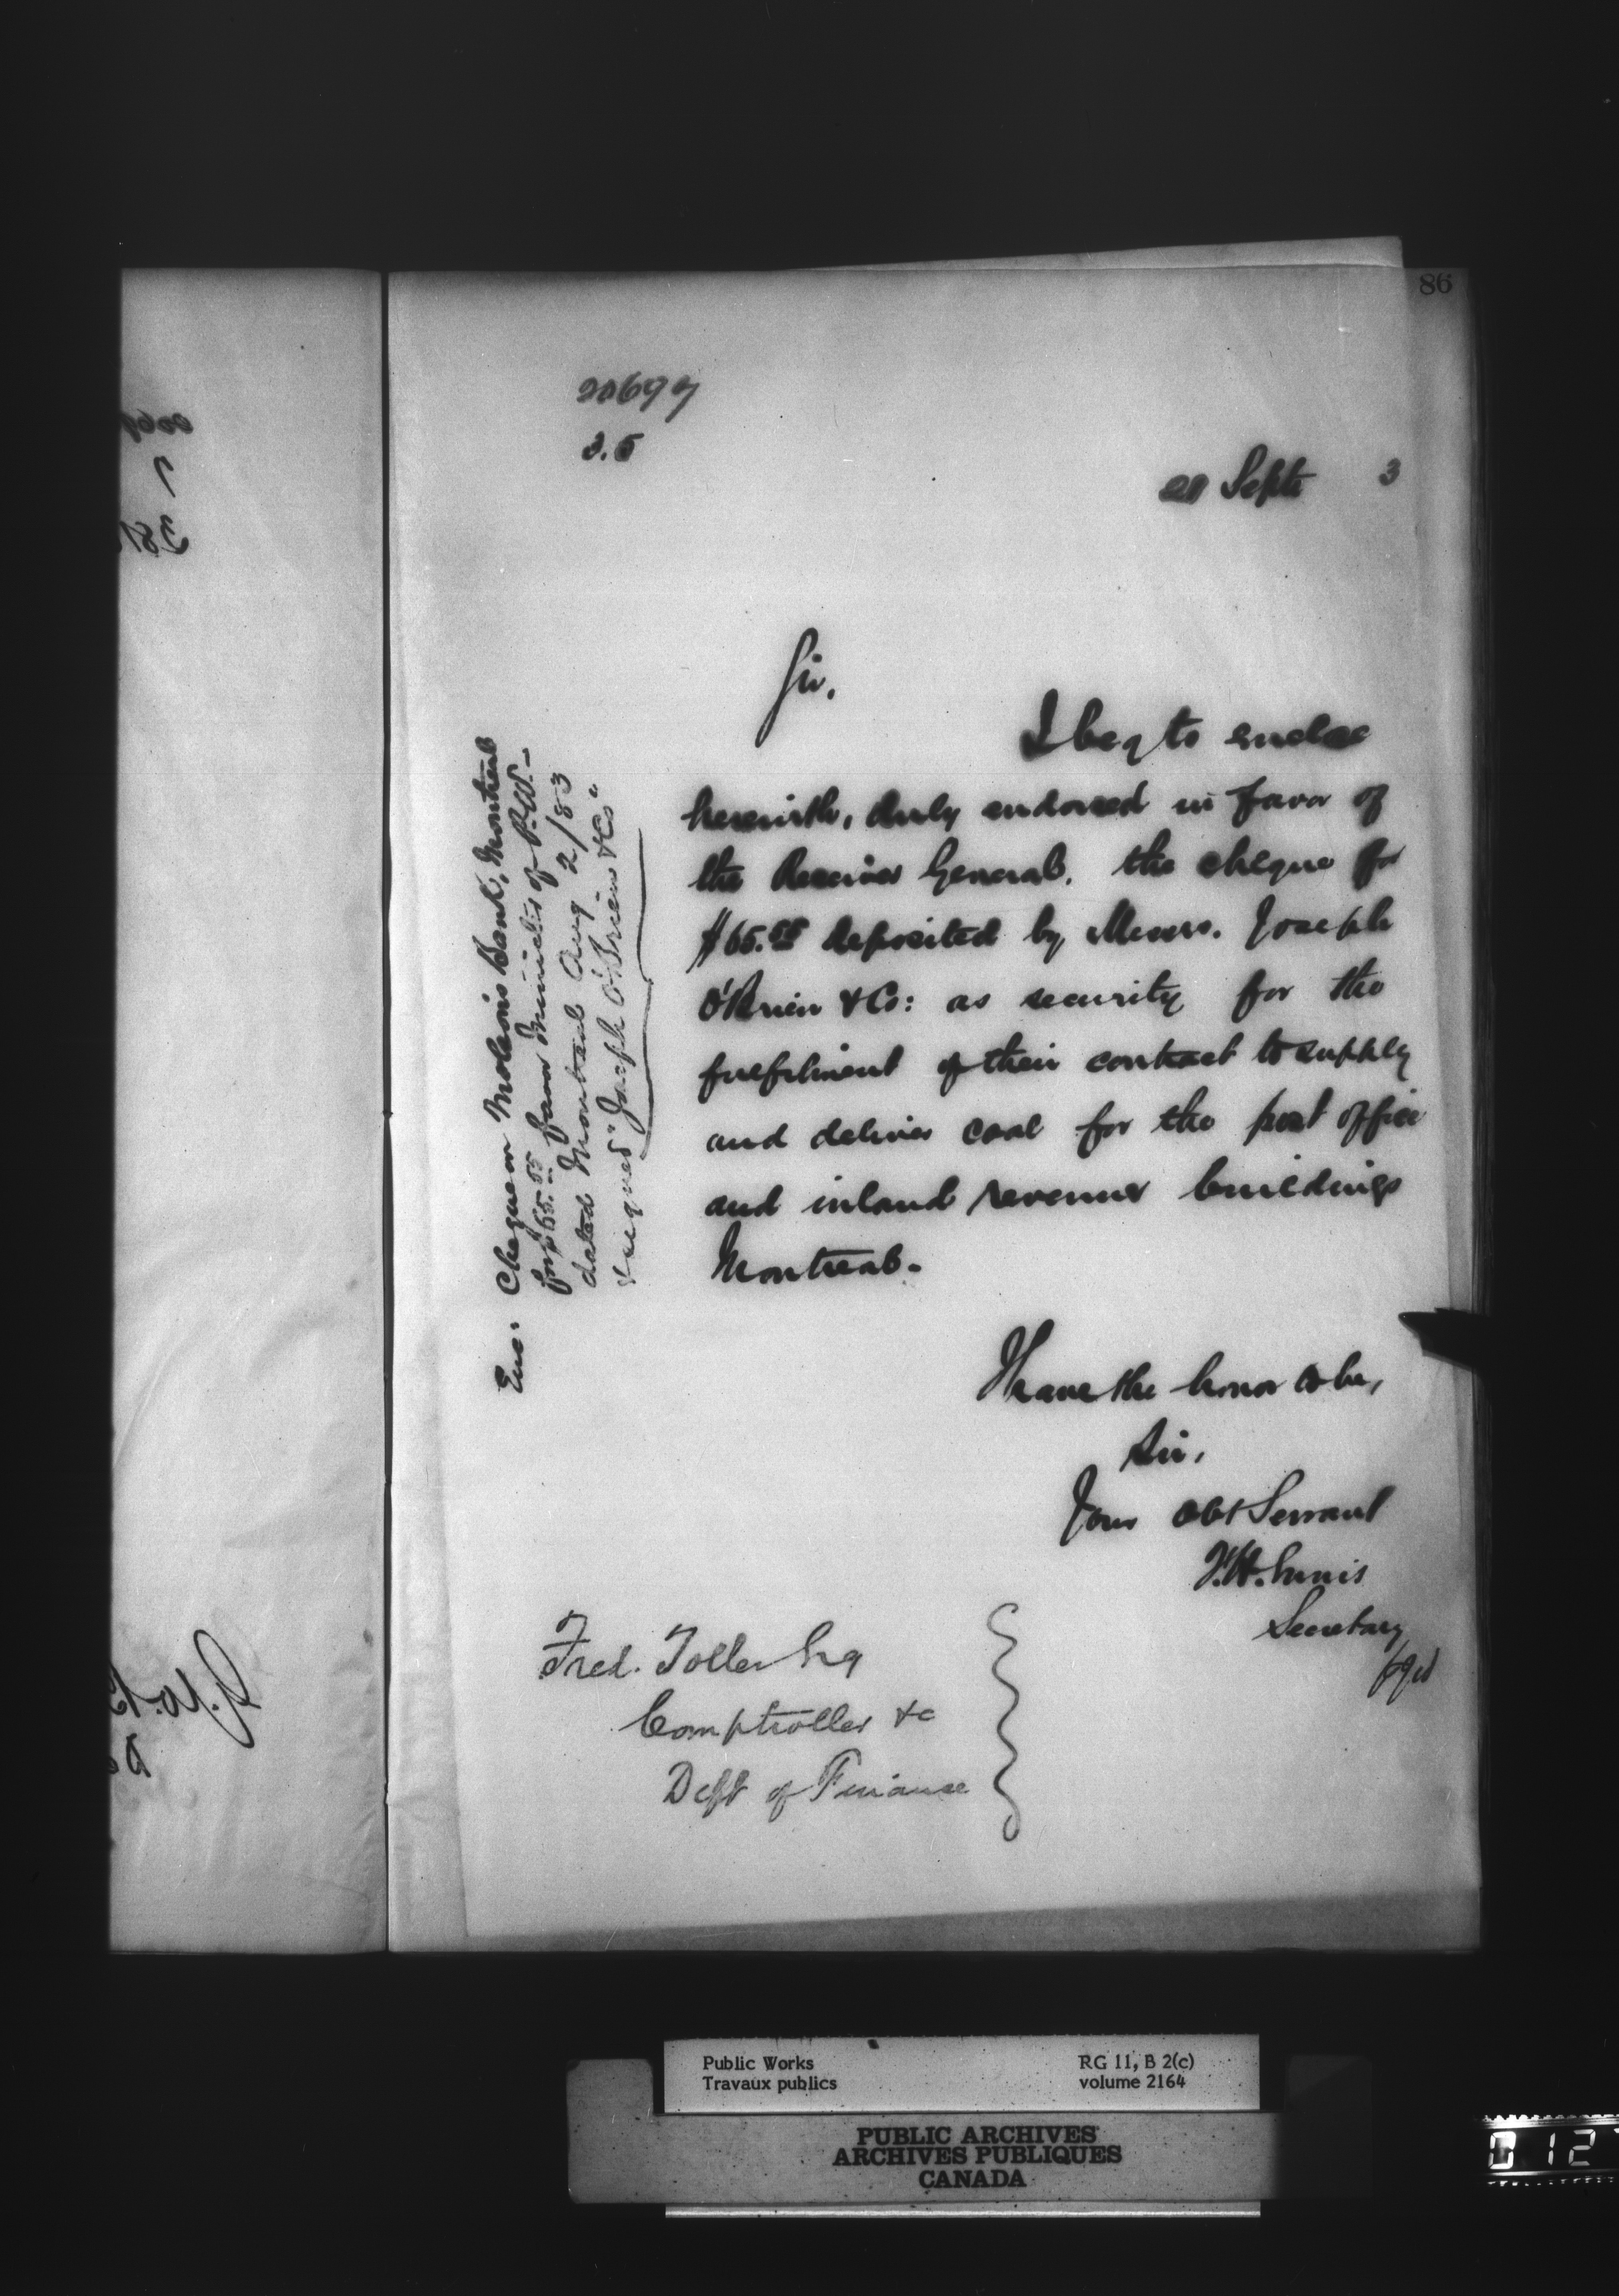 86
20697
3.5
21 Septr 3
Sir,
I beg to enclose
herewith, duly endorsed in favor of
the Receiver General, the cheque for
$65.00 deposited by Messrs. Joseph
O'Brien & Co: as security for the
fulfilment of their contract to supply
and deliver coal for the post office
and inland revenue buildings
Montreal.
I have the honor to be,
Sir,
Your Obt Servant
F.H. Ennis
Secretary
Fred. Toller Esq
Comptroller &c
Dept of Finance
Enc: Cheque on Molsons Bank, Montreal
for $65.00 favor Minister of P.W.-
dated Montreal Aug 2/83
& signed "Joseph O'Brien & Co"
Public Works
Travaux publics
RG 11, B 2(c)
volume 2164
PUBLIC ARCHIVES
ARCHIVES PUBLIQUES
CANADA
012